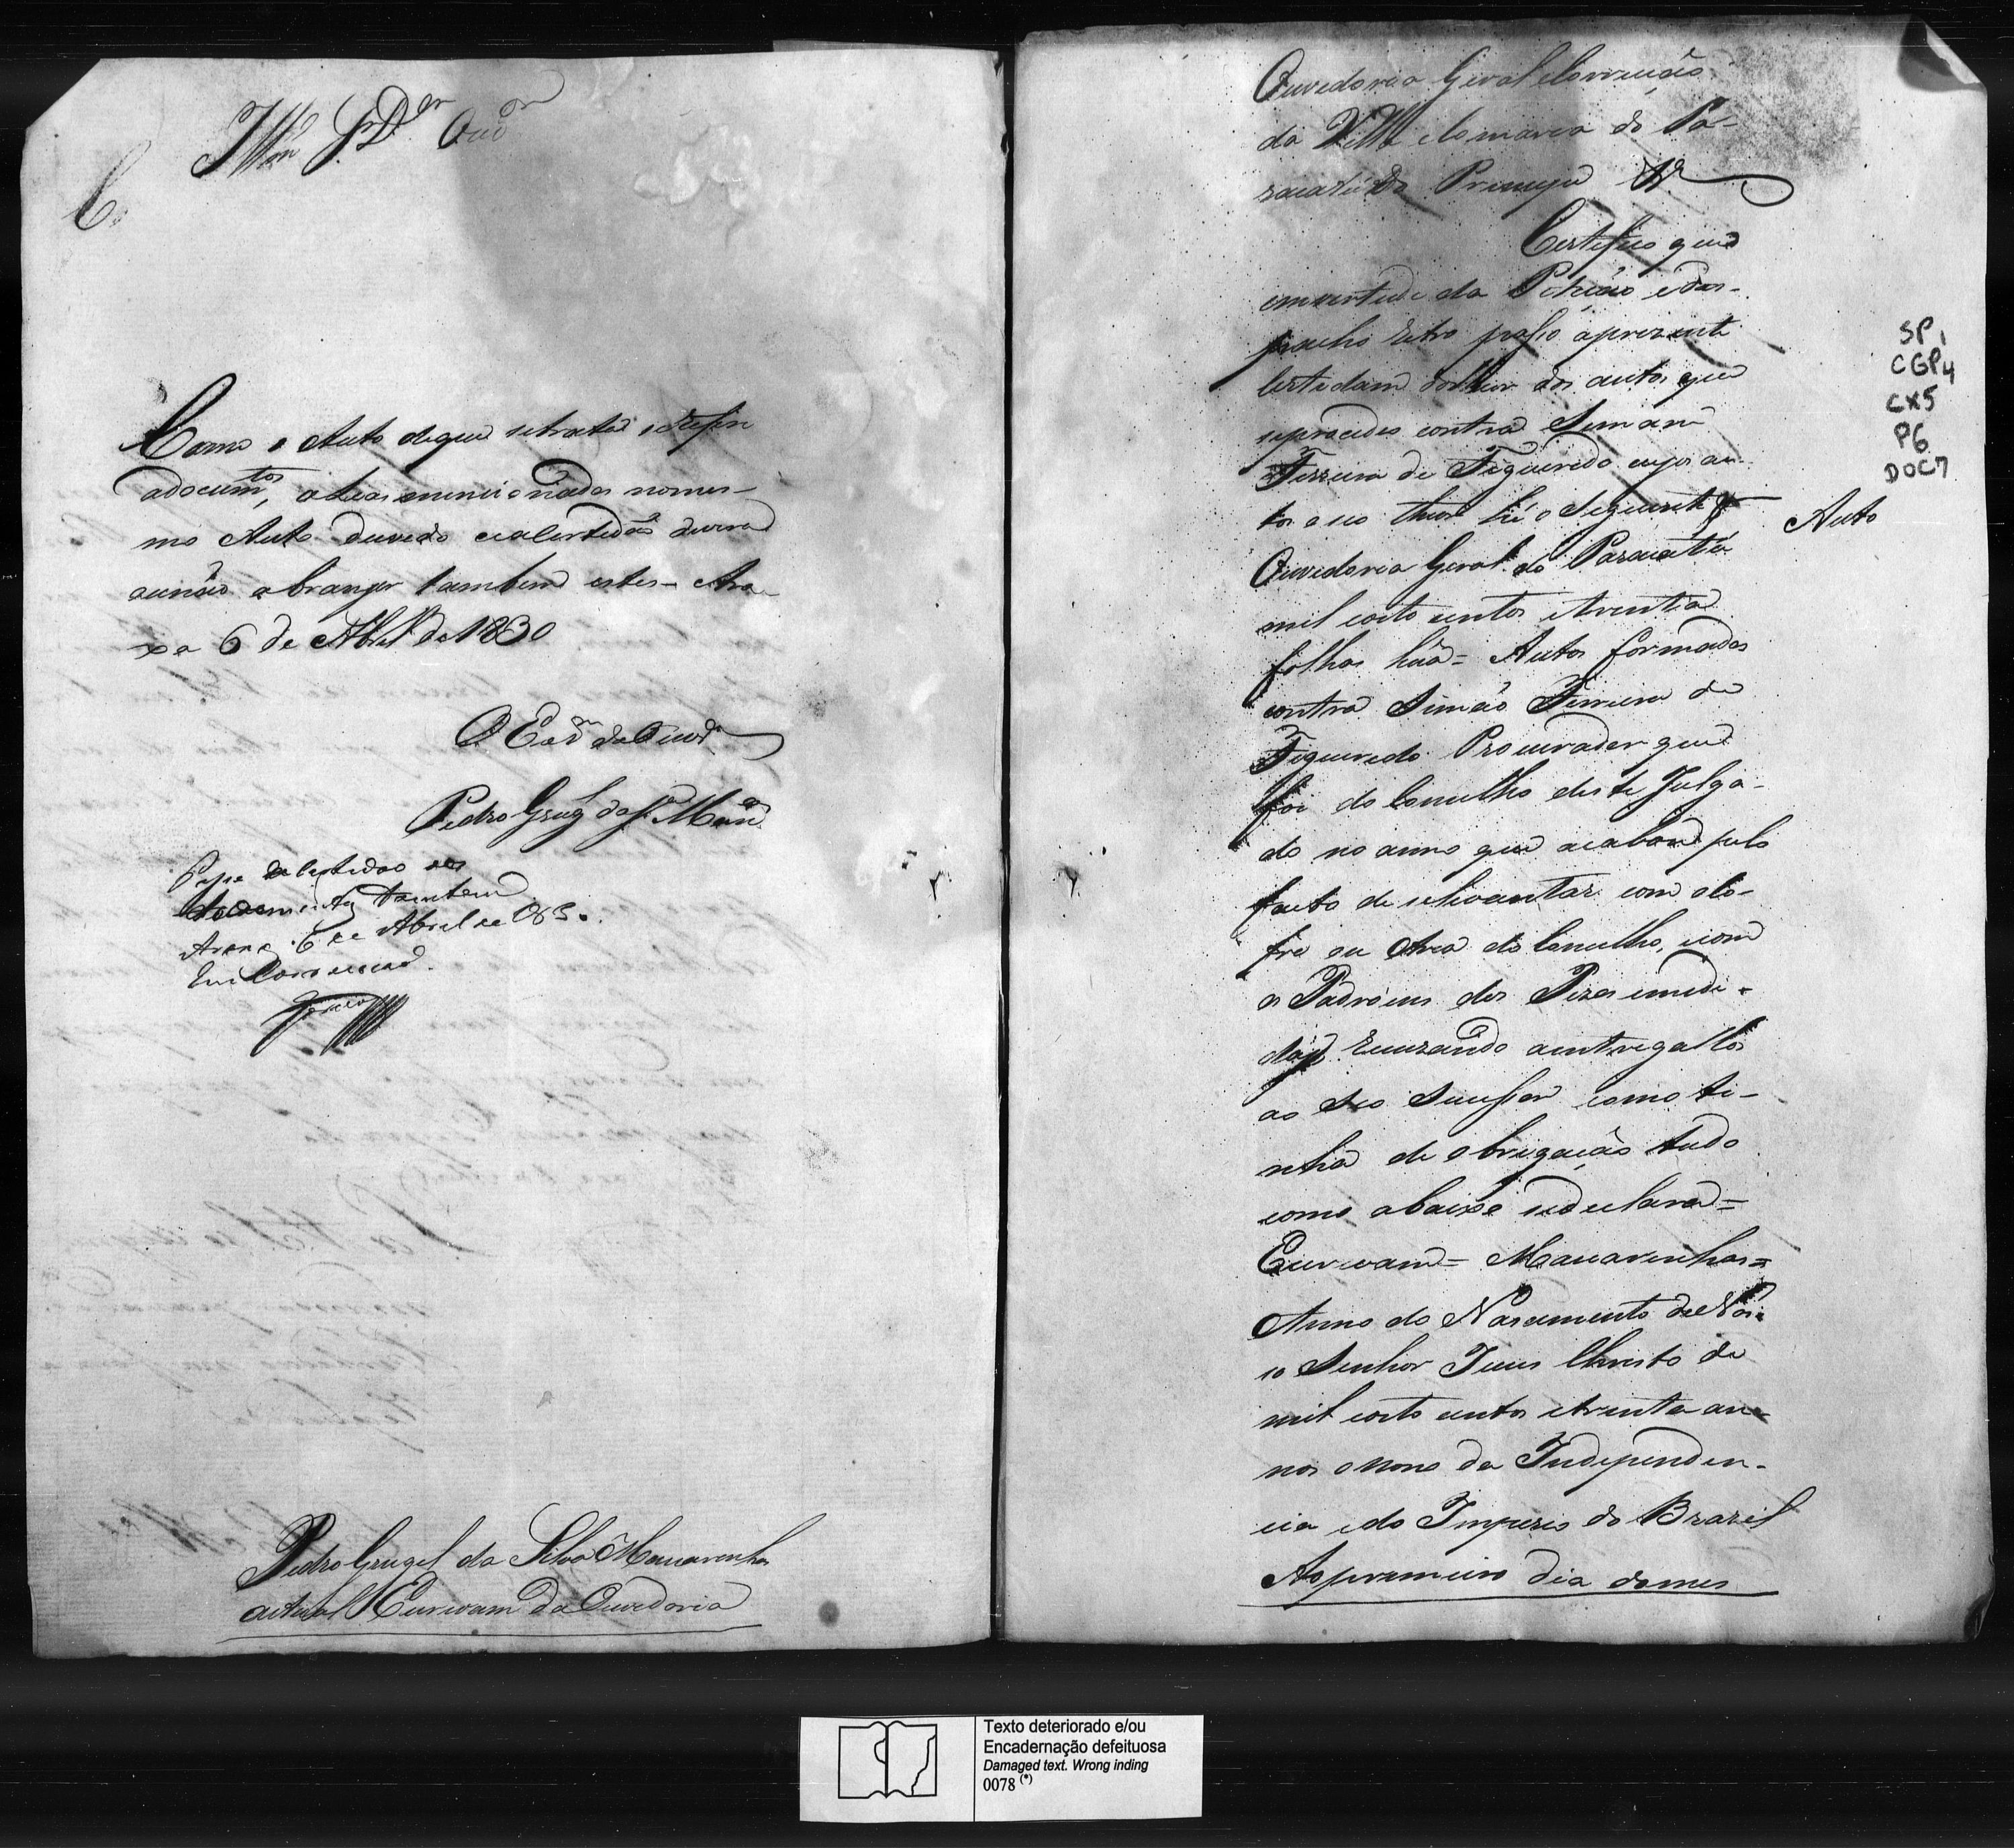 Illmo Sr Dor Ouvor
Como o Auto de que se trata se refira
a documtos, a huas mencionados nomes-
mo Auto duvido se a certidaõ devera
ou naõ abranger tambem estes - Ara
xa 6 de Abril de 1830
O Escram da Ouvda
Pedro Grugl da Sa Masc
Passe a certidao
documentos tambem
Araxa 6 de Abril de 1830.
Em Correicaõ.
Pedro Grugel da Silva Mascarenhas
actual Escrivam da Ouvedoria
Ouvedoria Geral e Correição
da Villa e Comarca do Pa-
racatú do Principe Va
Certifico que
em vertude da Petição e des-
pacho retro passo a prezente
Certidam do theor dos autos que
se procedeo contra Simam
Ferreira de Figueredo cujos au-
tos o seo theor hé o seguinte
Auto
Ouvedoria Geral do Paracatú
mil oito centos e trenta
folhas huã = Autos formados
contra Simaõ Ferreira de
Figueredo Procurador que
foi do Concelho deste Julga-
do no anno que acabou pelo
facto de se levantar com o Co-
fre ou Arca do Concelho, e com
os Padroens dos Pezos e medi-
das recuzando a entregallos
ao seo Sucessor como ti-
nha de obrigaçaõ tudo
como abaixo se declara =
Escrivam = Mascarenhas =
Anno do Nascimento de Nos-
so Senhor Jesus Christo de
mil oito centos e trinta an-
nos o nono da Independen-
cia e do Imperio do Brazil
Ao premeiro dia do mes
SP1
CGP4
CX5
P6
DOC7
Texto deteriorado e/ou
Encadernação defeituosa
Damaged text. Wrong inding
0078 (*)